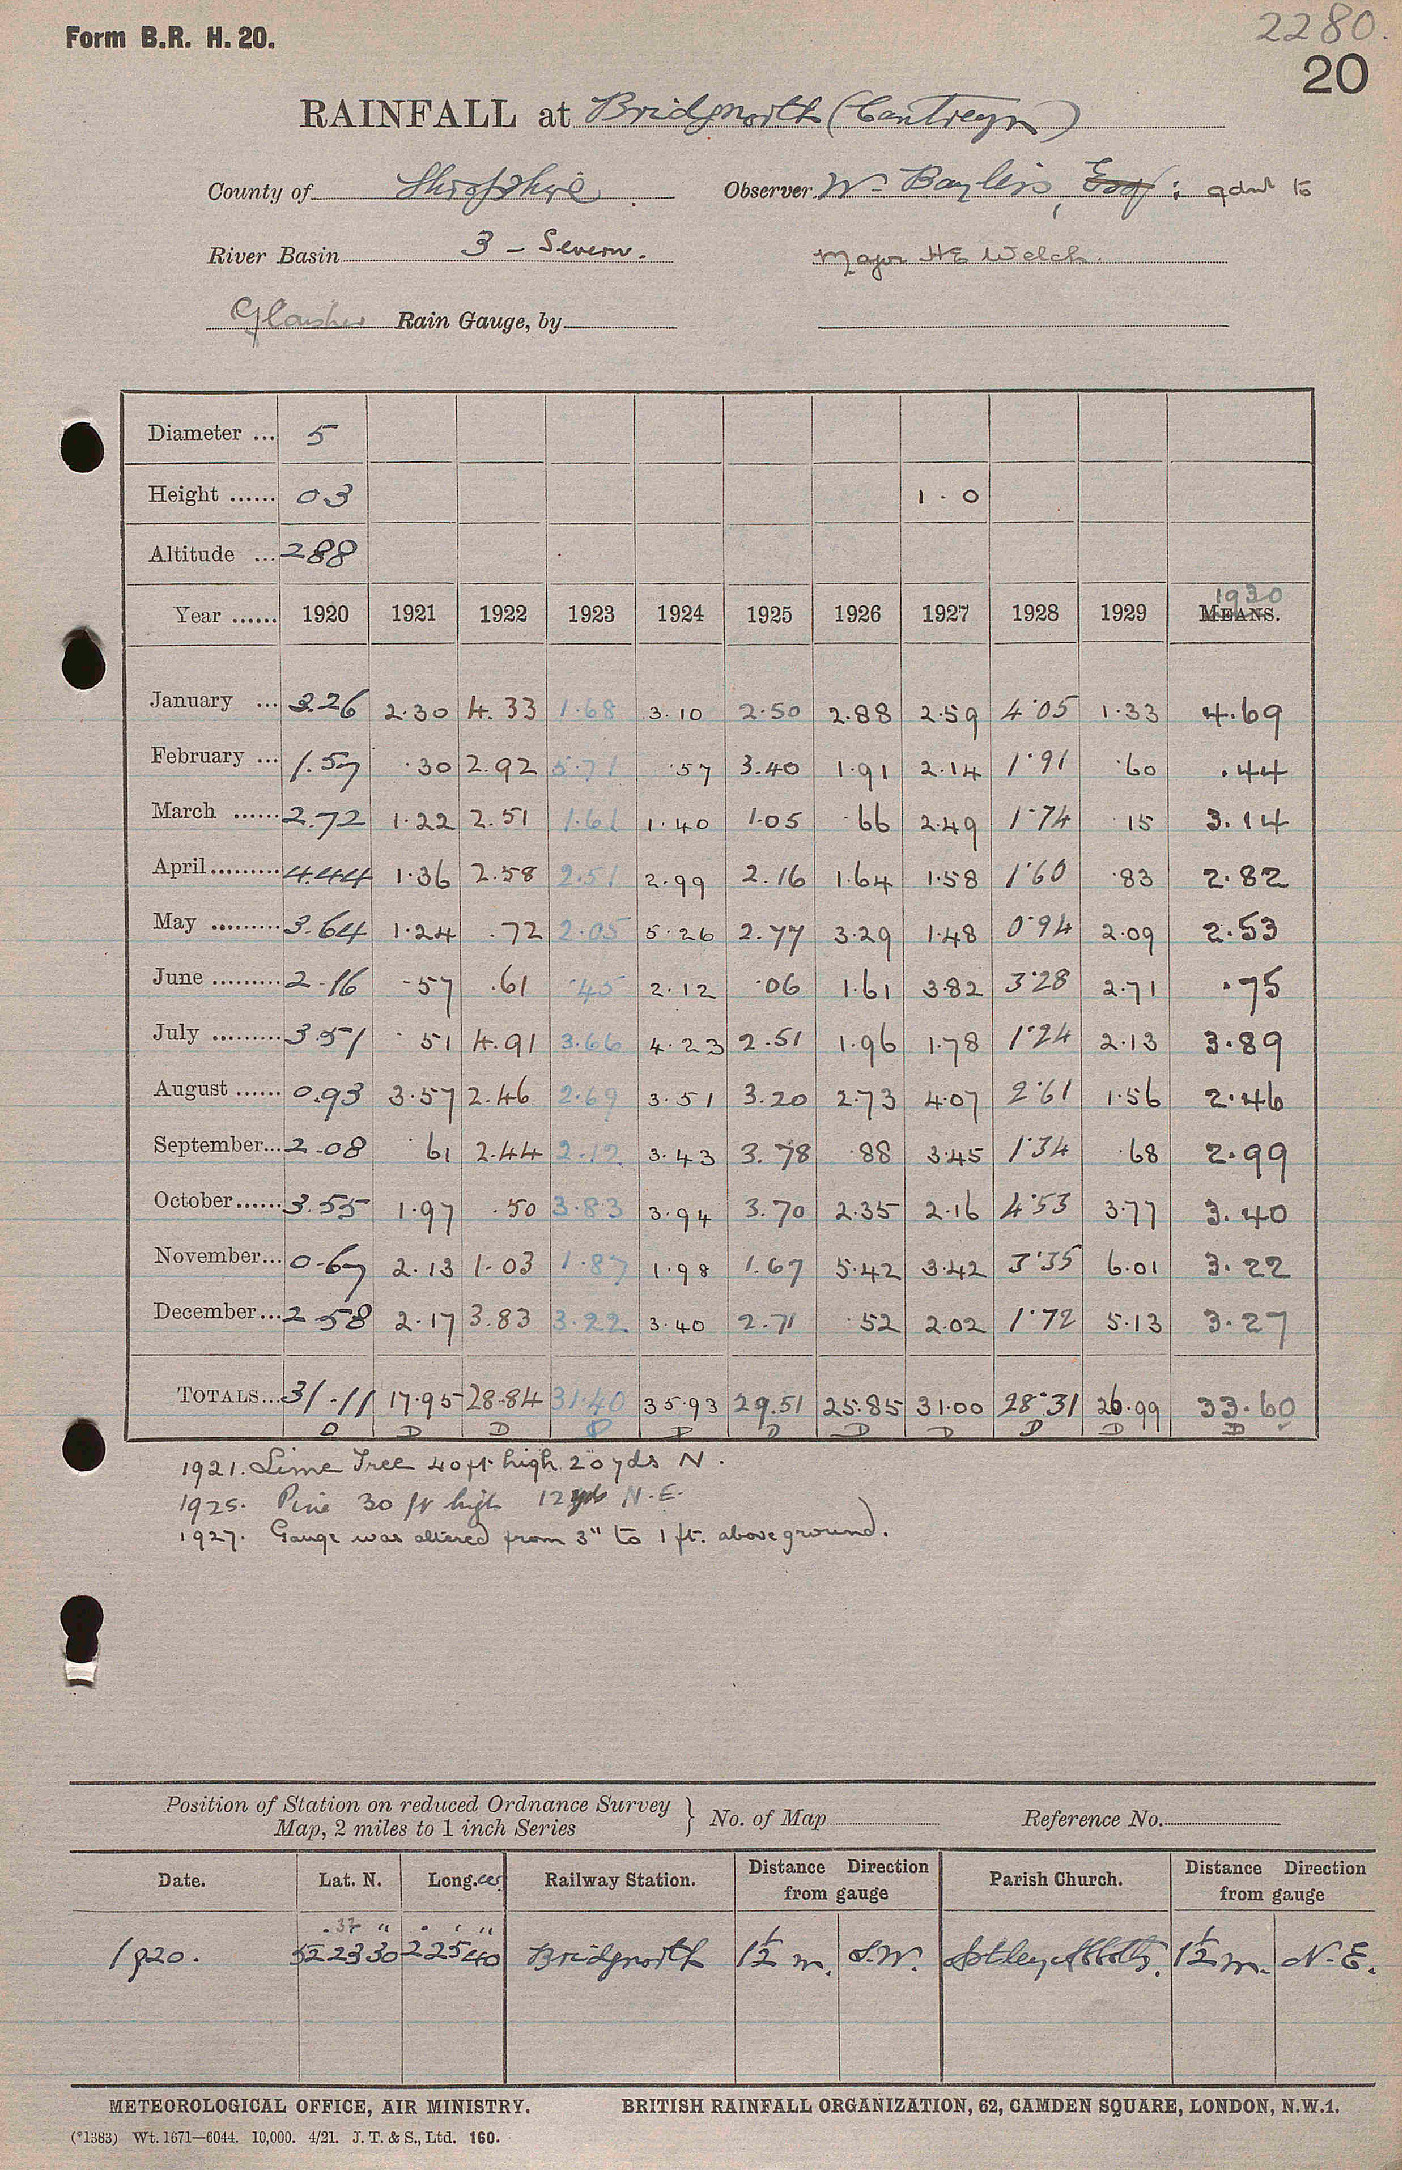 Form B.R. H. 20.
2280.
20
RAINFALL at Bridgnorth (Cantreyn)
County of Shropshire. Observer W. Bayliss, Esq; gdnr to
River Basin 3 - Severn. Major HE Welch.
Glaisher Rain Gauge, by
Diameter ... 5
Height ...... 03 1.0
Altitude ... 288
Year ...... 1920 1921 1922 1923 1924 1925 1926 1927 1928 1929 MEANS. 1930
January ... 3.26 2.30 4.33 1.68 3.10 2.50 2.88 2.59 4.05 1.33 4.69
February ... 1.57 .30 2.92 5.71 .57 3.40 1.91 2.14 1.91 .60 .44
March ...... 2.72 1.22 2.51 1.61 1.40 1.05 .66 2.49 1.74 .15 3.14
April ......... 4.44 1.36 2.58 2.51 2.99 2.16 1.64 1.58 1.60 .83 2.82
May ......... 3.64 1.24 .72 2.05 5.26 2.77 3.29 1.48 0.94 2.09 2.53
June ......... 2.16 .57 .61 .45 2.12 .06 1.61 3.82 3.28 2.71 .75
July ......... 3.51 .51 4.91 3.66 4.23 2.51 1.96 1.78 1.24 2.13 3.89
August ...... 0.93 3.57 2.46 2.69 3.51 3.20 2.73 4.07 2.61 1.56 2.46
September... 2.08 .61 2.44 2.12 3.43 3.78 .88 3.45 1.34 .68 2.99
October...... 3.55 1.97 .50 3.83 3.94 3.70 2.35 2.16 4.53 3.77 3.40
November... 0.67 2.13 1.03 1.87 1.98 1.67 5.42 3.42 3.35 6.01 3.22
December... 2.58 2.17 3.83 3.22 3.40 2.71 .52 2.02 1.72 5.13 3.27
TOTALS... 31.11 17.95 28.84 31.40 35.93 29.51 25.85 31.00 28.31 26.99 33.60
D D D D D D D D D D D
1921. Lime Tree 40ft high 20yds N.
1925. Pine 30 ft high 12 yds N.E.
1927. Gauge was altered from 3" to 1 ft. above ground.
Position of Station on reduced Ordnance Survey Map, 2 miles to 1 inch Series } No. of Map Reference No.
Date. Lat. N. Long. W. Railway Station. Distance Direction from gauge Parish Church. Distance Direction from gauge
32
1920. 52 23 30 2 25 40 Bridgnorth 1½ m. S.W. Astley Abbotts. 1½ m. N.E.
METEOROLOGICAL OFFICE, AIR MINISTRY. BRITISH RAINFALL ORGANIZATION, 62, CAMDEN SQUARE, LONDON, N.W.1.
(*1383) Wt. 1671—6044. 10,000. 4/21. J. T. & S., Ltd. 160.